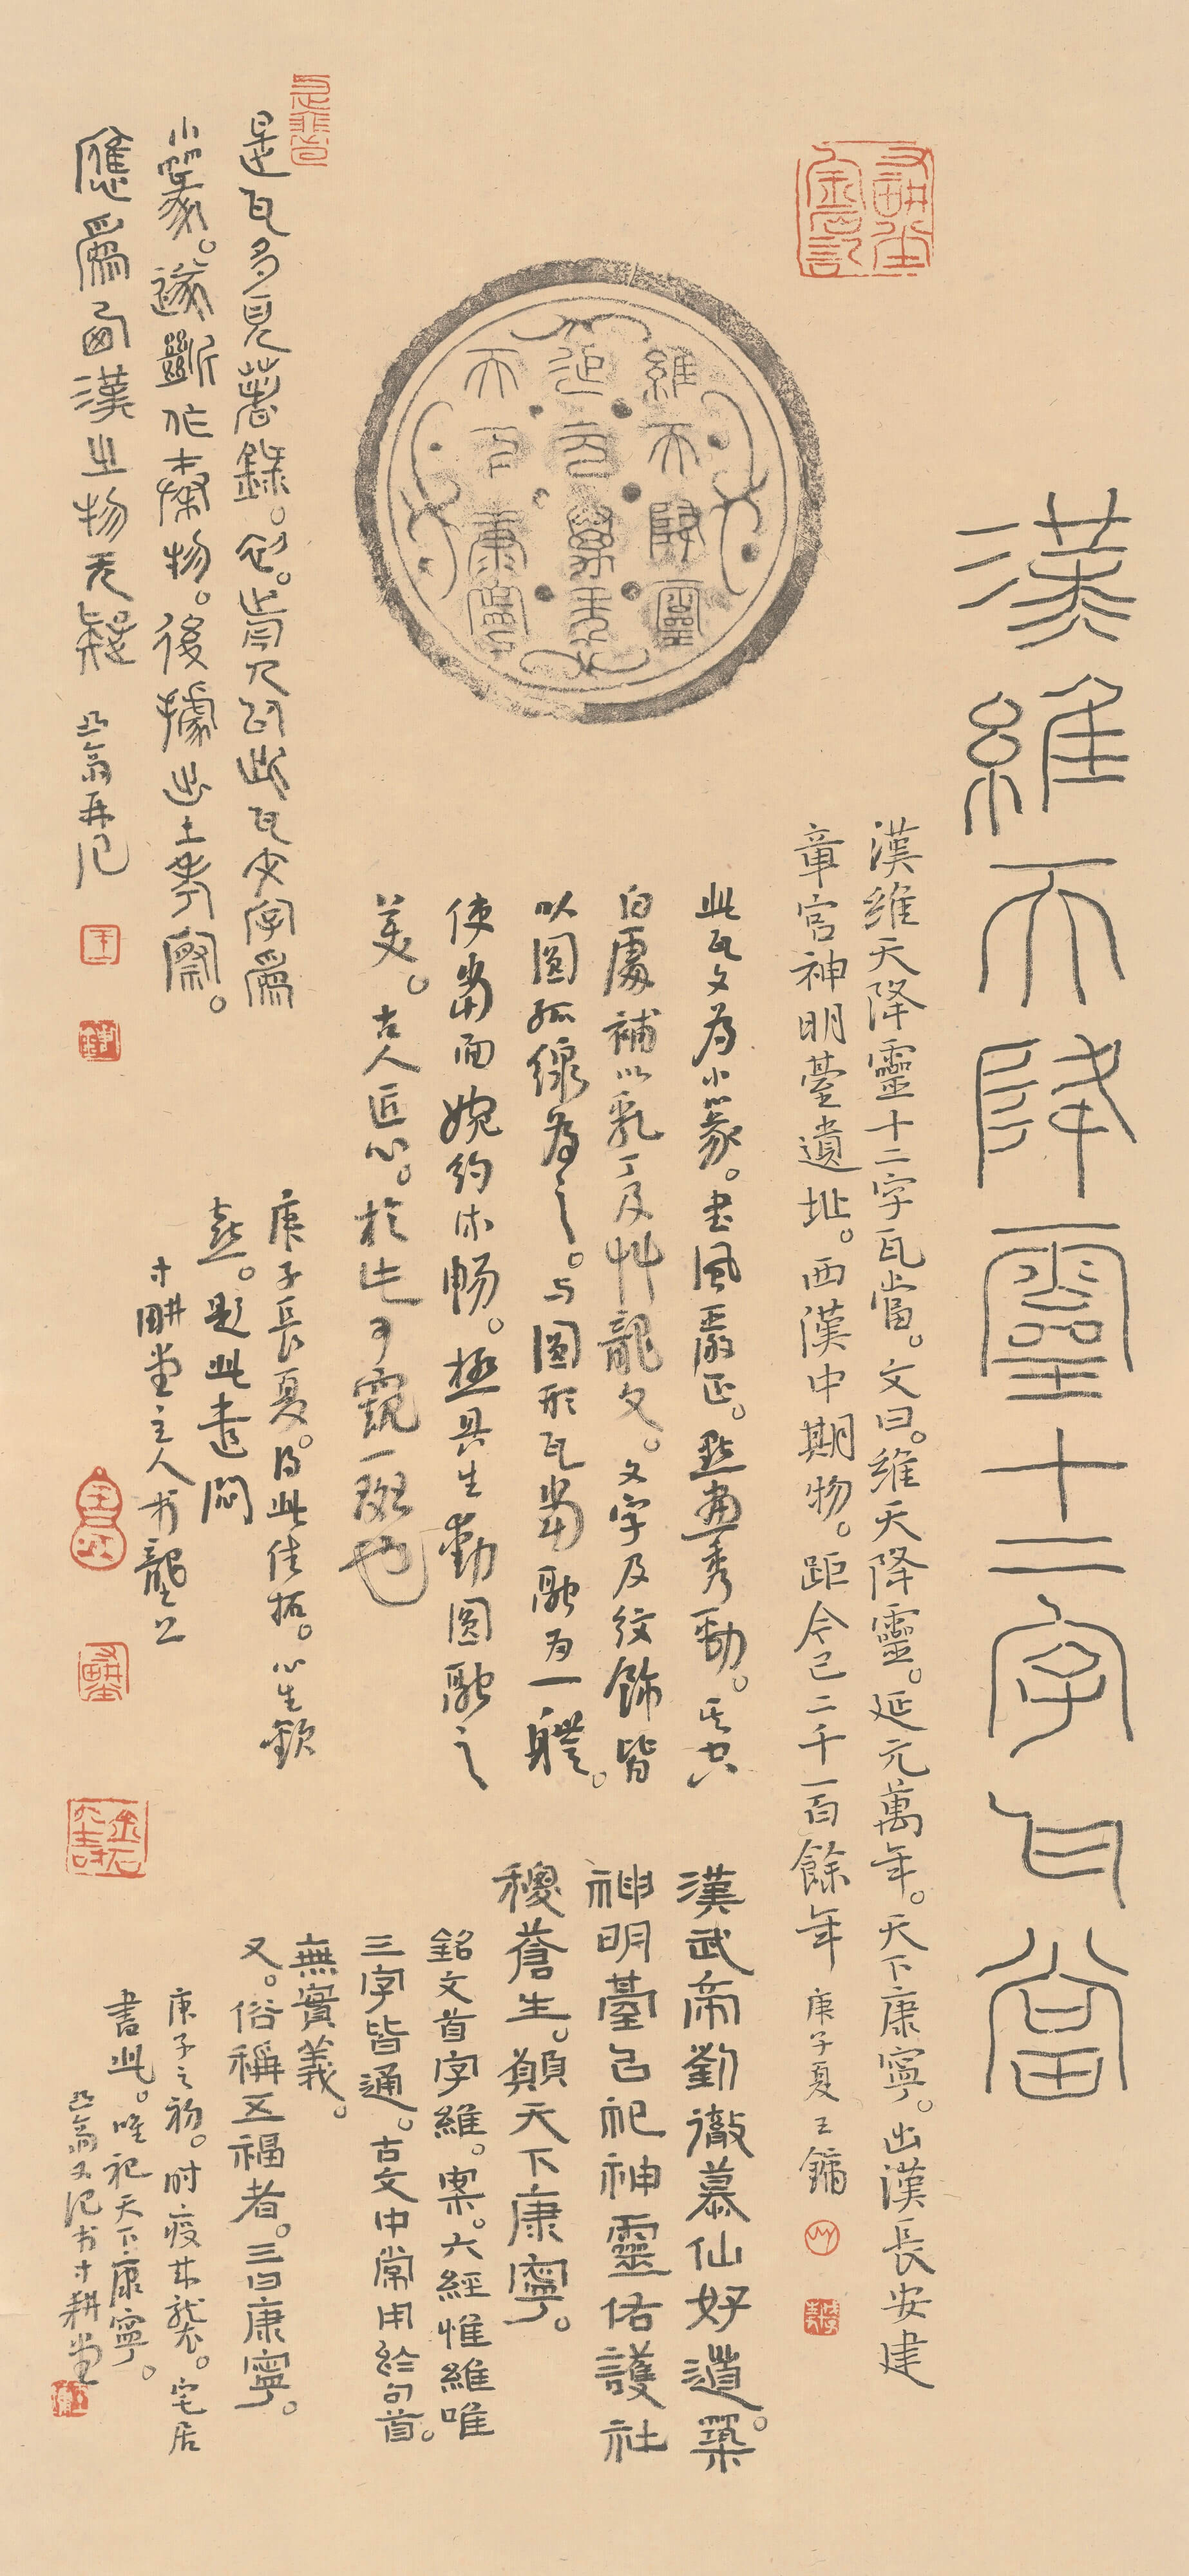 漢維天降靈十二字瓦當
維天降靈
延元萬年
天下康寧
漢維天降靈十二字瓦當。文曰。維天降靈。延元萬年。天下康寧。出漢長安建
章宮神明臺遺址。西漢中期物。距今已二千一百餘年 庚子夏王鏞
此瓦文为小篆。書風嚴正。點畫秀勁。其空
白處補以乳丁及艸龍文。文字及紋飾皆
以圓弧線为之。与圓形瓦當融为一體。
使當面婉約流暢。極具生動圓融之
美。古人匠心。於此可窺一斑也
庚子長夏。得此佳拓。心生歡
喜。題此遣悶
寸耕堂主人
漢武帝劉徹慕仙好道。築
神明臺以祀神靈佑護社
稷蒼生。願天下康寧。
銘文首字維。案。六經惟維唯
三字皆通。古文中常用於句首。
無實義。
又。俗稱五福者。三曰康寧。
庚子之初。時疫來襲。宅居
書此。唯祀天下康寧。
凸翁又記於寸耕堂
是瓦多見著錄。昔人因此瓦文字爲
小篆。遂斷作秦物。後據出土考察。
應爲西漢之物无疑 凸翁再記